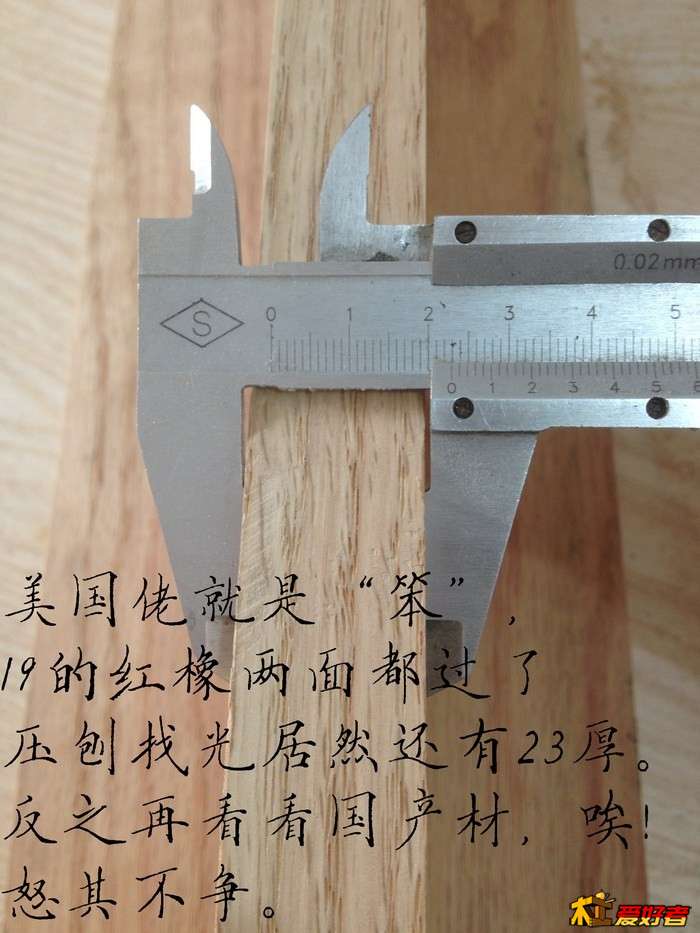 0.02mm
S
0 1 2 3 4 5
0 1 2 3 4 5 6
美国佬就是“笨”,
19的红橡两面都过了
压刨找光居然还有23厚。
反之再看看国产材,唉!
怒其不争。
木工爱好者